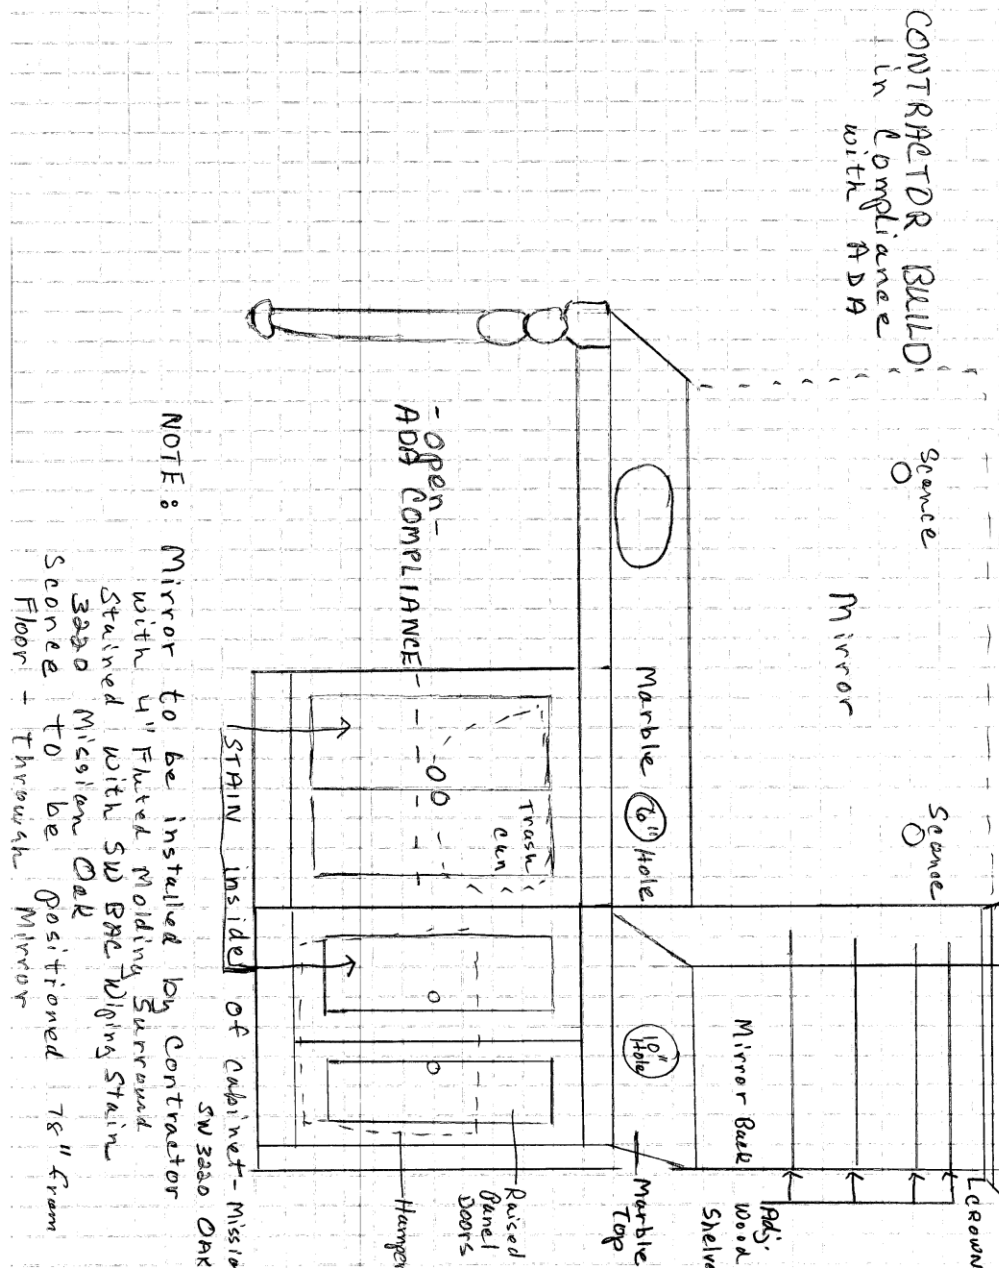 CONTRACTOR BUILD
in Compliance
with ADA
Sconce
Sconce
Mirror
CROWN
Adj.
Wood
Shelve
Mirror Back
Marble
6" Hole
10"
Hole
Marble
Top
- Open -
ADA COMPLIANCE -
Trash
can
Raised
Panel
Doors
Hamper
STAIN inside of cabinet - Missio
SW 3220 OAK
NOTE: Mirror to be installed by contractor
with 4" Fluted Molding Surround
Stained with SW BAC Wiping Stain
3220 Mission Oak
Sconce to be positioned 78" from
Floor + through Mirror